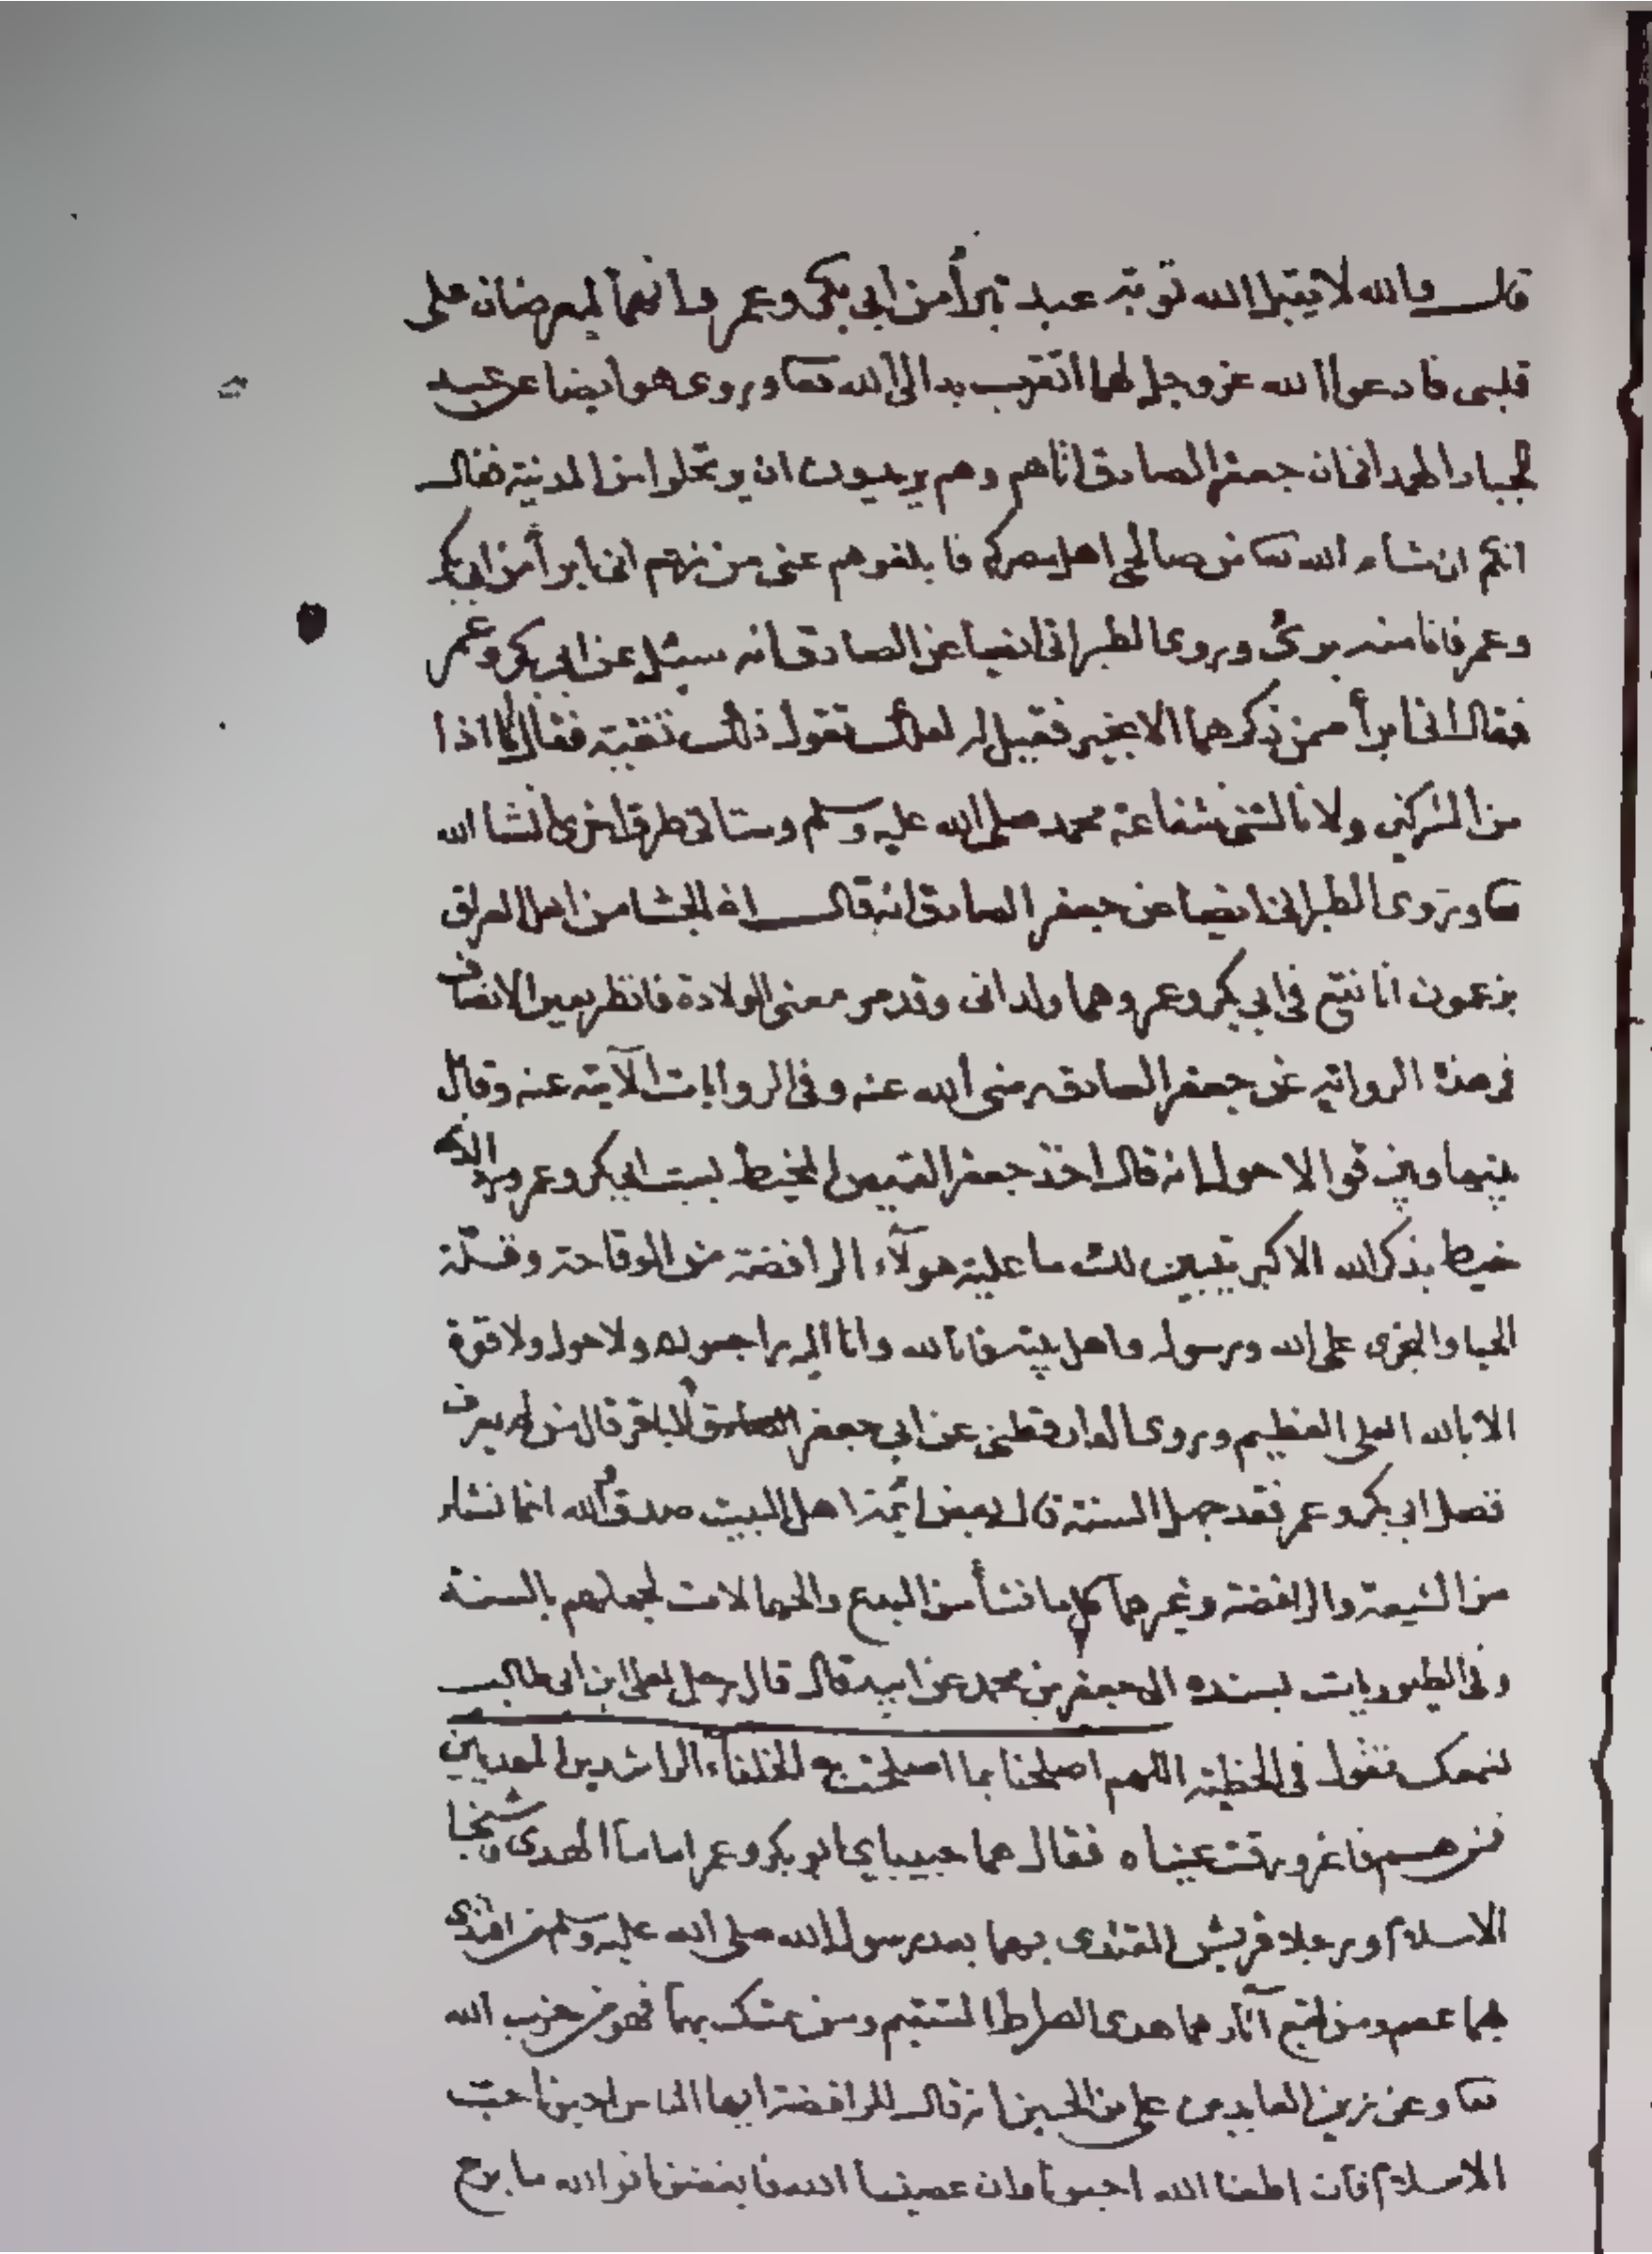 قال والله لا يقبل الله توبة عبد تبرأ من ابي بكر وعمر وانهما ليعرضان على
قلبي فادعوا الله عزوجل لهما اتقرب به الى الله تعا وروى هو ايضا عن عبد
الجبار الهمداني ان جعفر الصادق اتاهم وهم يريدون ان يرتحلوا من المدينة فقال
انتم ان شاء الله تعا من صالحي اهل مصركم فابلغوهم عني من زعم اني ابرأ من ابي بكر
وعمر فانا منه برئ وروى الطبراني ايضا عن الصادق انه سئل عن ابي بكر وعمر
فقال اني ابرأ ممن ذكرهما الا بخير فقيل له لعلك تقول ذلك تقية فقال انا اذا
من المشركين ولا نالتني شفاعة محمد صلى الله عليه وسلم وستاتي طرق اخرى انشا الله
تعا وروى الطبراني ايضا عن جعفر الصادق انه قال ان الخبثا من اهل العراق
يزعمون انا نقع في ابي بكر وعمر وهما ولداني وقد مر معنى الولادة فانظر بعين الانصاف
في هذه الرواية عن جعفر الصادق رضى الله عنه وفي الروايات الآتية عنه وقال
بينها وبين قوا الاحول انه قال اخذ جعفر القميص المخيط بسبت ابي بكر وعمر
خيط بذكر الله الاكبر يتبين لك ما عليه هولآء الرافضة من الوقاحة وقلة
الحيا والجرى على الله ورسوله واهل بيته فانا لله وانا اليه راجعون ولا حول ولا قوة
الا بالله العلي العظيم وروى الدارقطني عن ابي جعفر الباقر قال من لم يعرف
فضل ابي بكر وعمر فقد جهل السنة قال بعض ائمة اهل البيت صدق والله انما نشاء
من الشيعة والرافضة وغيرهما كل ما نشأ من البدع والجهالات لجهلهم بالسنة
وفي الطيوريات بسنده الى جعفر بن محمد عن ابيه قال قال رجل لعلي ابن ابي طالب
نسمعك تقول في الخطبة اللهم اصلحنا بما اصلحت به الخلفاء الراشدين المهديين
فمن هم فاغرورقت عيناه فقال هما حبيباي ابو بكر وعمر اماما الهدى وشيخا
الاسلام ورجلا قريش المقتدى بهما بعد رسول الله صلى الله عليه وسلم من اقتدى
بهما عصم ومن اتبع آثارهما هدى الصراط المستقيم ومن تمسك بهما فهو من حزب الله
تعا وعن زين العابدين علي بن الحسين انه قال للرافضة ايها الناس احبونا حب
الاسلام فان اطعنا الله احبونا وان عصينا الله فابغضونا فوالله ما برح